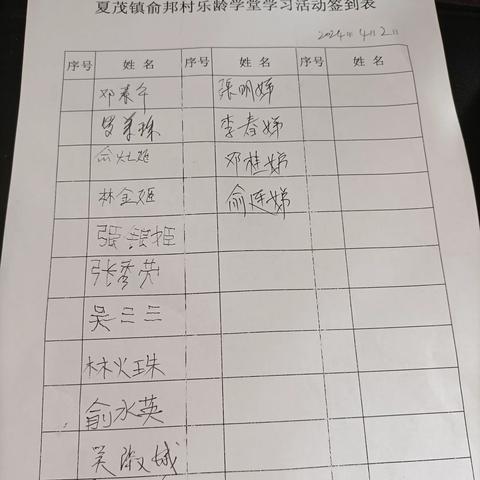 夏茂镇俞邦村乐龄学堂学习活动签到表
2024年4月2日
序号 姓名 序号 姓名 序号 姓名
邓素午 張明娣
罗菜珠 李春娣
俞灶姬 邓桂娣
林金姬 俞莲娣
張銀姬
张秀英
吴三三
林火珠
俞水英
吴淑城